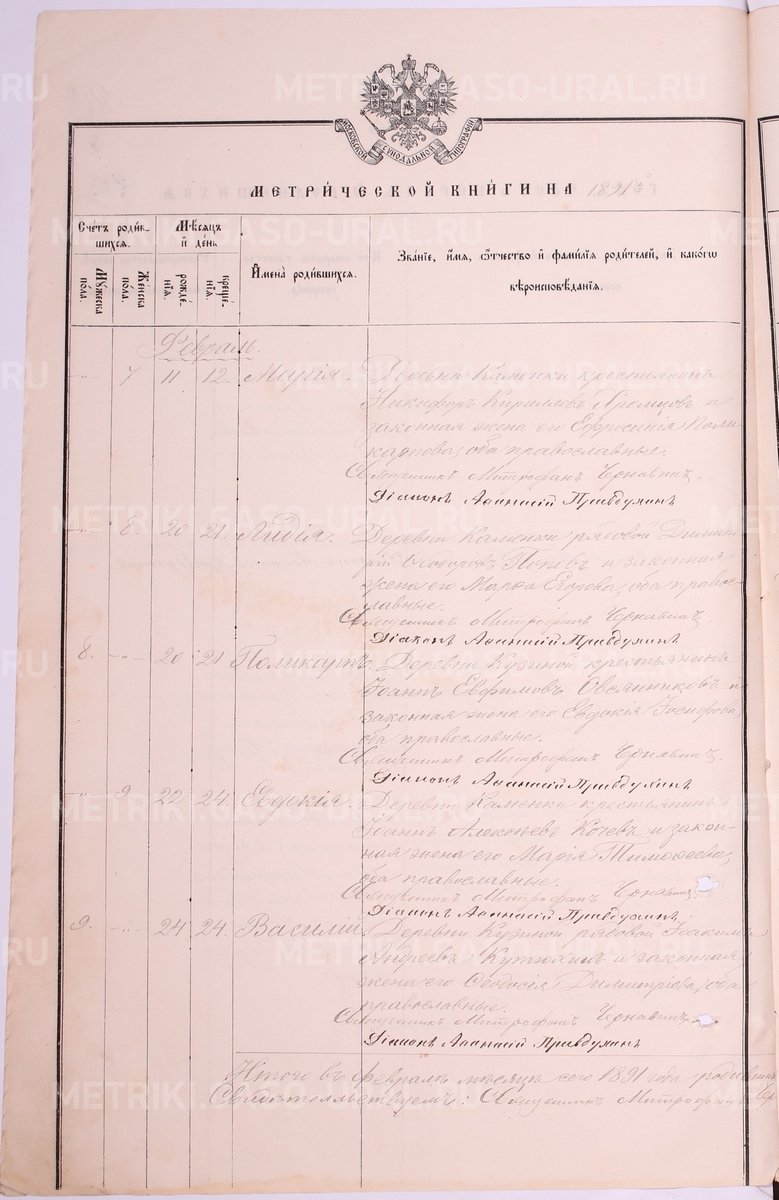 МОСКОВСКОЙ СУНОДАЛЬНОЙ ТИПОГРАФІИ
МЕТРИ́ЧЕСКОЙ КНИ́ГИ НА 1891 й
Сче́тъ роди́в-
шихся.
Мѣ́сяцъ
и҆ де́нь
И҆мена̀ роди́вшихся.
Зва́нїе, и҆́мя, ѻ҆́тчество и҆ фами́лїя роди́телей, и҆ како́гѡ
вѣроисповѣ́данїя.
Мꙋ́жеска
по́ла.
Же́нска
по́ла.
рожде́-
нїя.
креще́-
нїя.
Февраль.
-"- 7 11 12. Марія. Деревни Каменки крестьянинъ
Никифоръ Кириловъ и
законная жена его Ефросинія Поли-
карпова, оба православные.
Священникъ Митрофанъ Чернавинъ.
Діаконъ Аѳанасій Правдухинъ
-"- 8. 20 21. Лидія. Деревни Каменки рядовой Димит-
рій Ѳедоровъ Поповъ и законная
жена его Марѳа Егорова, оба право-
славные.
Священникъ Митрофанъ Чернавинъ.
Діаконъ Аѳанасій Правдухинъ
8. -"- 20 21 Поликарпъ. Деревни Кузиной крестьянинъ
Іоаннъ Евфимовъ Овсянниковъ и
законная жена его Евдокія Іосифова,
оба православные.
Священникъ Митрофанъ Чернавинъ.
Діаконъ Аѳанасій Правдухинъ
-"- 9 22 24. Евдокія. Деревни Каменки крестьянинъ
Іоаннъ Алексѣевъ Кочевъ и закон-
ная жена его Марія Тимоѳеева,
оба православные.
Священникъ Митрофанъ Чернавинъ.
Діаконъ Аѳанасій Правдухинъ
9. -"- 24 24. Василій. Деревни Кузиной рядовой
Андреевъ Кутюхинъ и законная
жена его Ѳеодосія Димитріева, оба
православные.
Священникъ Митрофанъ Чернавинъ.
Діаконъ Аѳанасій Правдухинъ
Итого въ февралѣ мѣсяцѣ сего 1891 года
Свидѣтельствуемъ: Священникъ Митрофанъ
METRIKI.GASO-URAL.RU